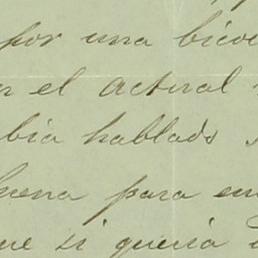 por una bico
n el actual
bia hablado s
buena para en
ue si queria